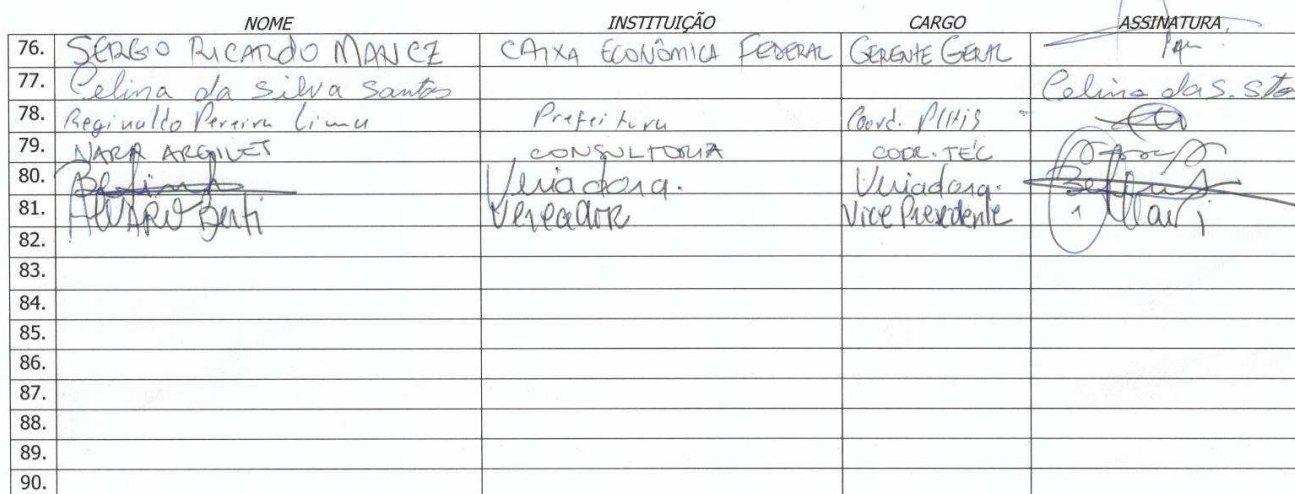 NOME INSTITUIÇÃO CARGO ASSINATURA
76. SERGIO RICARDO MANCZ CAIXA ECONÔMICA FEDERAL GERENTE GERAL
77. Celina da Silva Santos Celina da S. Sto
78. Reginaldo Pereira Lima Prefeitura Coord. PLHIS
79. NARA ARGILES CONSULTORIA COOR. TÉC
80. Veriadora. Veriadora.
81. ALVARO Berti Vereador Vice Presidente
82.
83.
84.
85.
86.
87.
88.
89.
90.